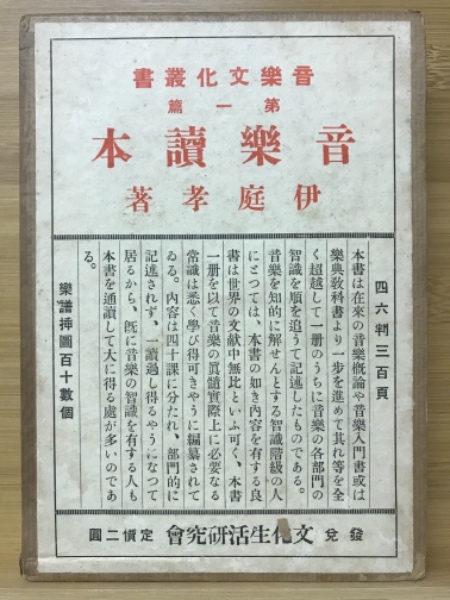 音樂文化叢書
第一篇
音樂讀本
伊庭孝著
四六判三百頁
本書は在來の音樂概論や音樂入門書或は
樂典敎科書より一步を進めて其れ等を全
く超越して一册のうちに音樂の各部門の
智識を順を追うて記述したものである。
音樂を知的に解せんとする智識階級の人
にとつては、本書の如き內容を有する良
書は世界の文獻中無比といふ可く、本書
一册を以て音樂の眞髓實際上に必要なる
常識は悉く學び得可きやうに編纂されて
ゐる。內容は四十課に分たれ、部門的に
記述されず、一讀過し得るやうになつて
居るから、旣に音樂の智識を有する人も
本書を通讀して大に得る處が多いのであ
る。
樂譜揷圖百十數個
發兌 文化生活硏究會 定價二圓